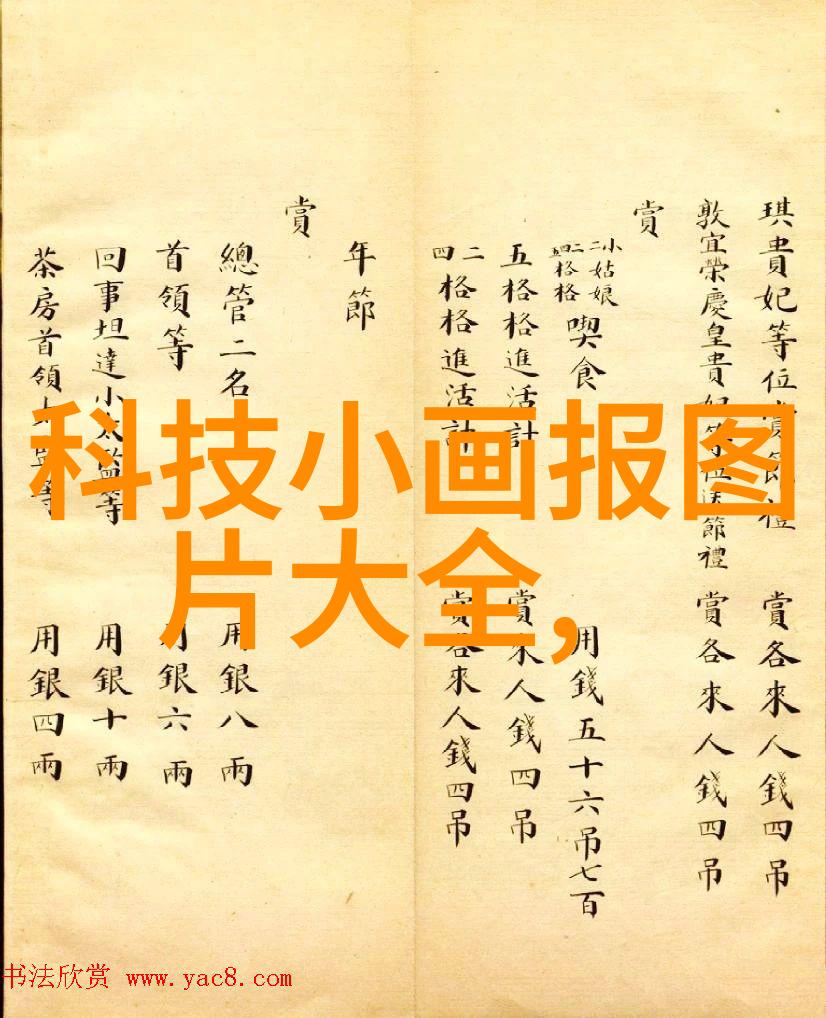 琪貴妃等位賞節禮 賞各來人錢四吊
敦宜榮慶皇貴妃等位送節禮 賞各來人錢四吊
賞
小姑娘
二
二格格
四格格
喫食 用錢五十六吊七百
五格格進活計 賞來人錢四吊
二
四
格格進活計 賞各來人錢四吊
年節
賞
總管二名 用銀八兩
首領等 用銀六兩
回事坦達小太監等 用銀十兩
茶房首領太監等 用銀四兩
科技小画报图
片大全,
书法欣赏 www.yac8.com